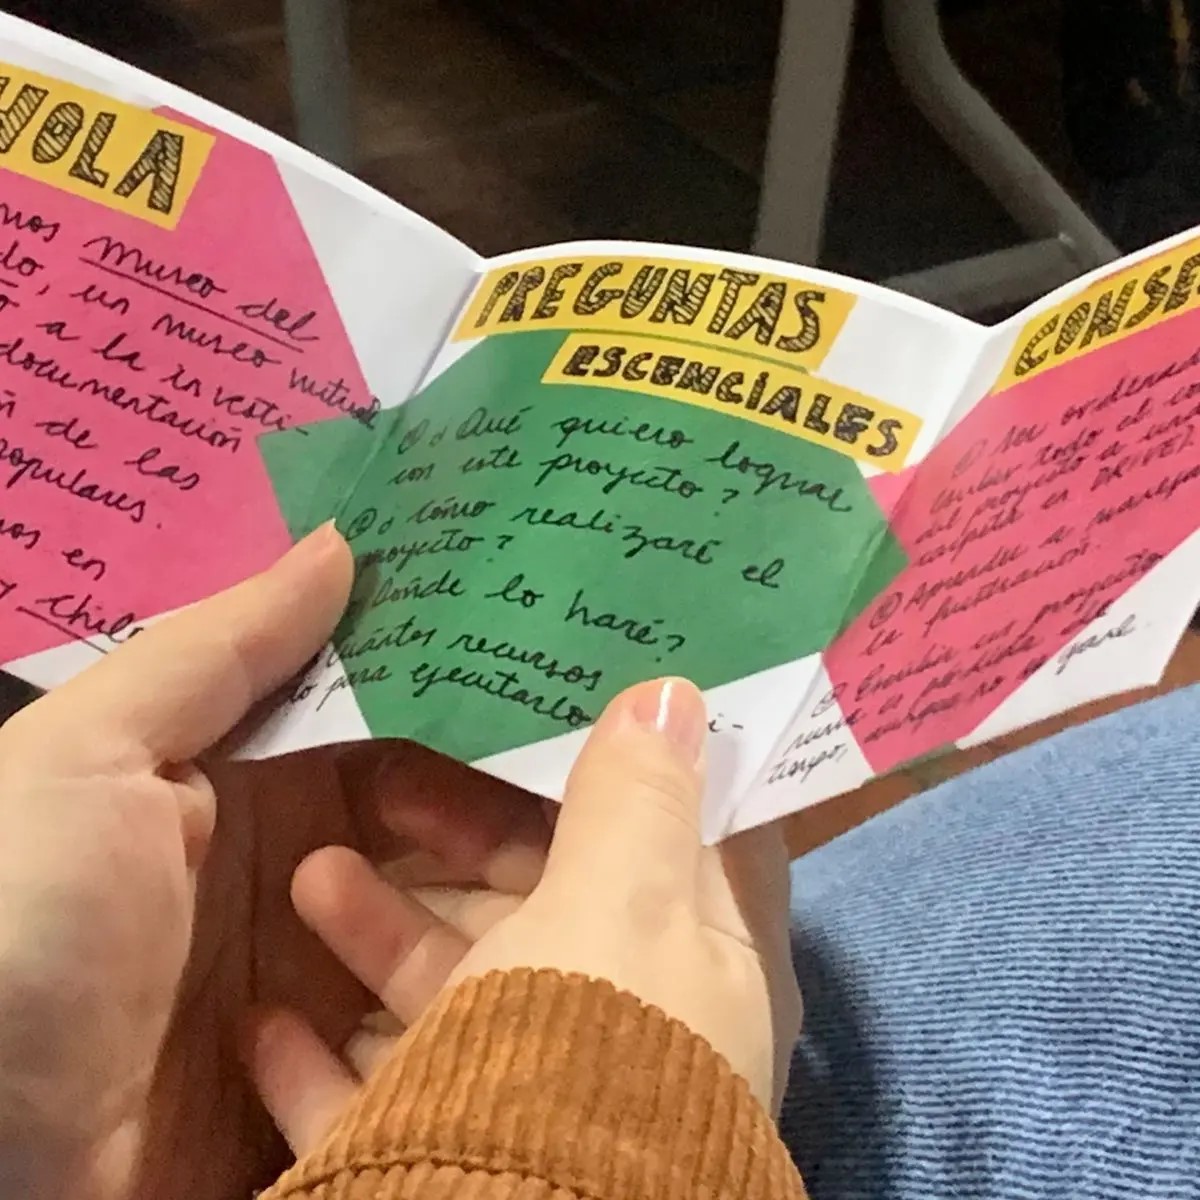 HOLA
museo del
do, un museo virtual
a la investi-
documentación
de las
populares.
en
y Chile
PREGUNTAS
ESCENCIALES
¿Qué quiero lograr
con este proyecto?
¿cómo realizaré el
proyecto?
Dónde lo haré?
cuántos recursos
para ejecutarlo
CONSE
ser ordenad
todo el co
del proyecto a una
carpeta en DRIVE
Aprender a manejar
la frustración.
Escribir un proyecto
nunca es pérdida de
tiempo, aunque no se gane.